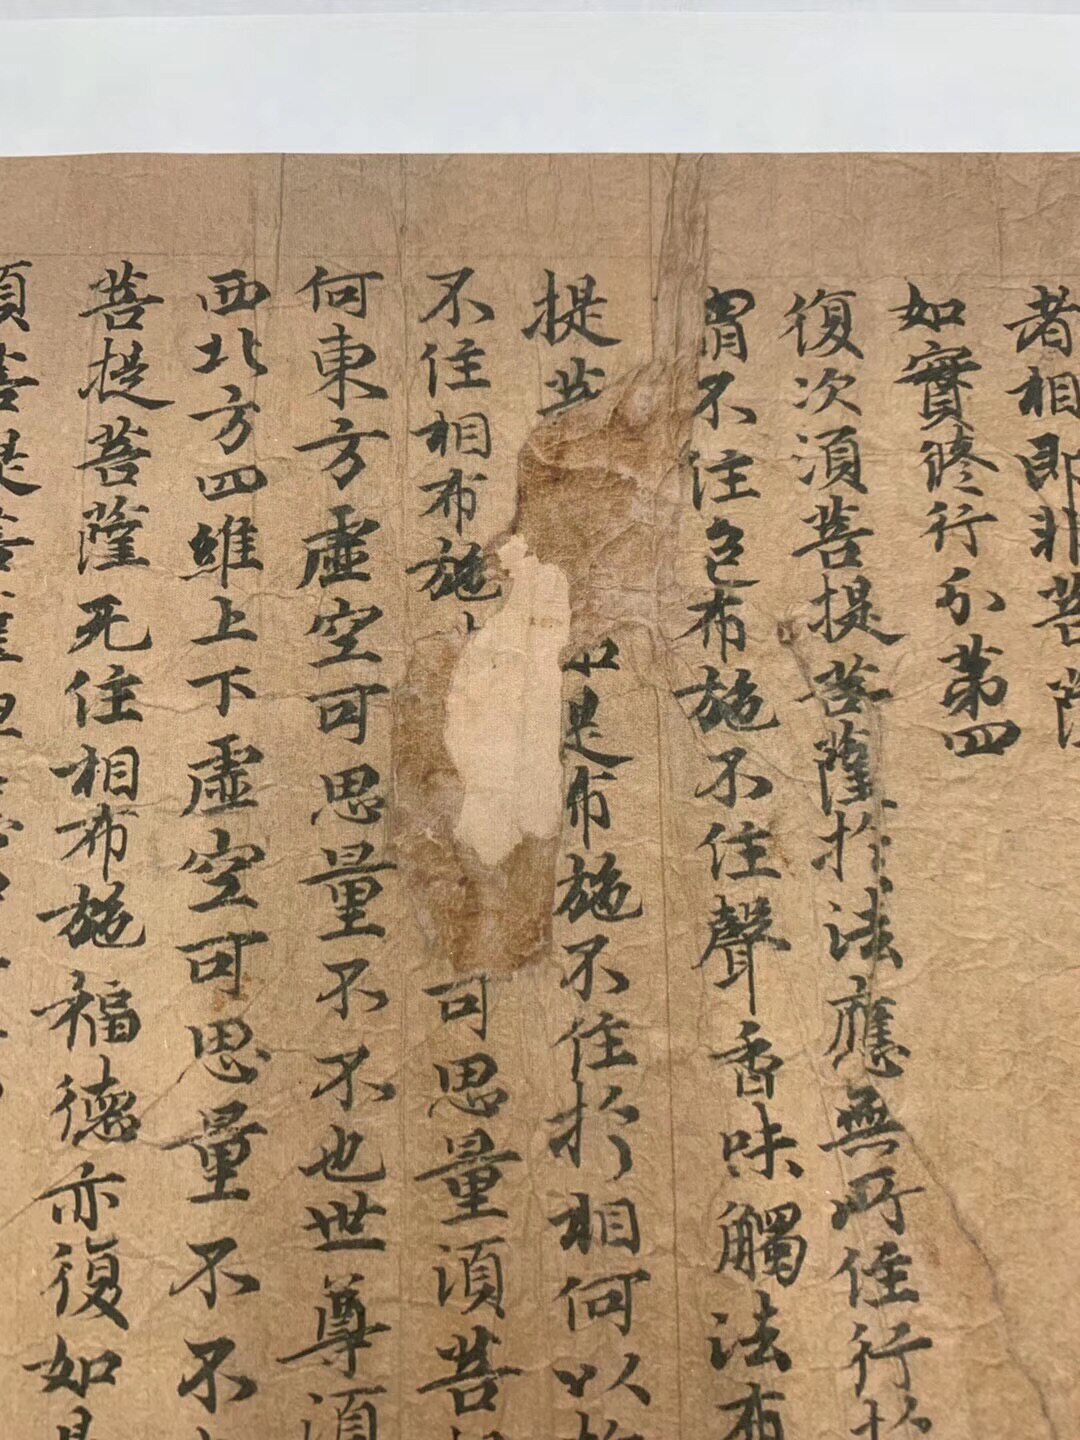 者相即非菩薩
如實修行分第四
復次須菩提菩薩於法應無所住行於
謂不住色布施不住聲香味觸法布
提菩 如是布施不住於相何以故
不住相布施 可思量須菩提
何東方虛空可思量不不也世尊須
西北方四維上下虛空可思量不不
菩提菩薩無住相布施福德亦復如是
須菩提菩薩